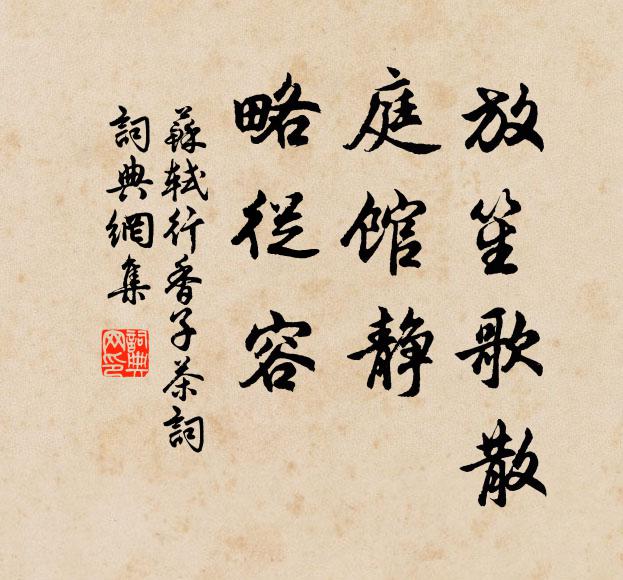 放笙歌散
庭馆静
略從容
蘇軾行香子茶詞
詞典網集
詞典网印